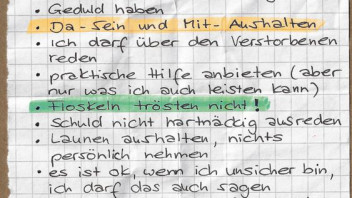 • Geduld haben
• Da-Sein und Mit-Aushalten
• Ich darf über den Verstorbenen
reden
• praktische Hilfe anbieten (aber
nur was ich auch leisten kann)
• Floskeln trösten nicht!
• Schuld nicht hartnäckig ausreden
• Launen aushalten, nichts
persönlich nehmen
• es ist ok, wenn ich unsicher bin,
ich darf das auch sagen